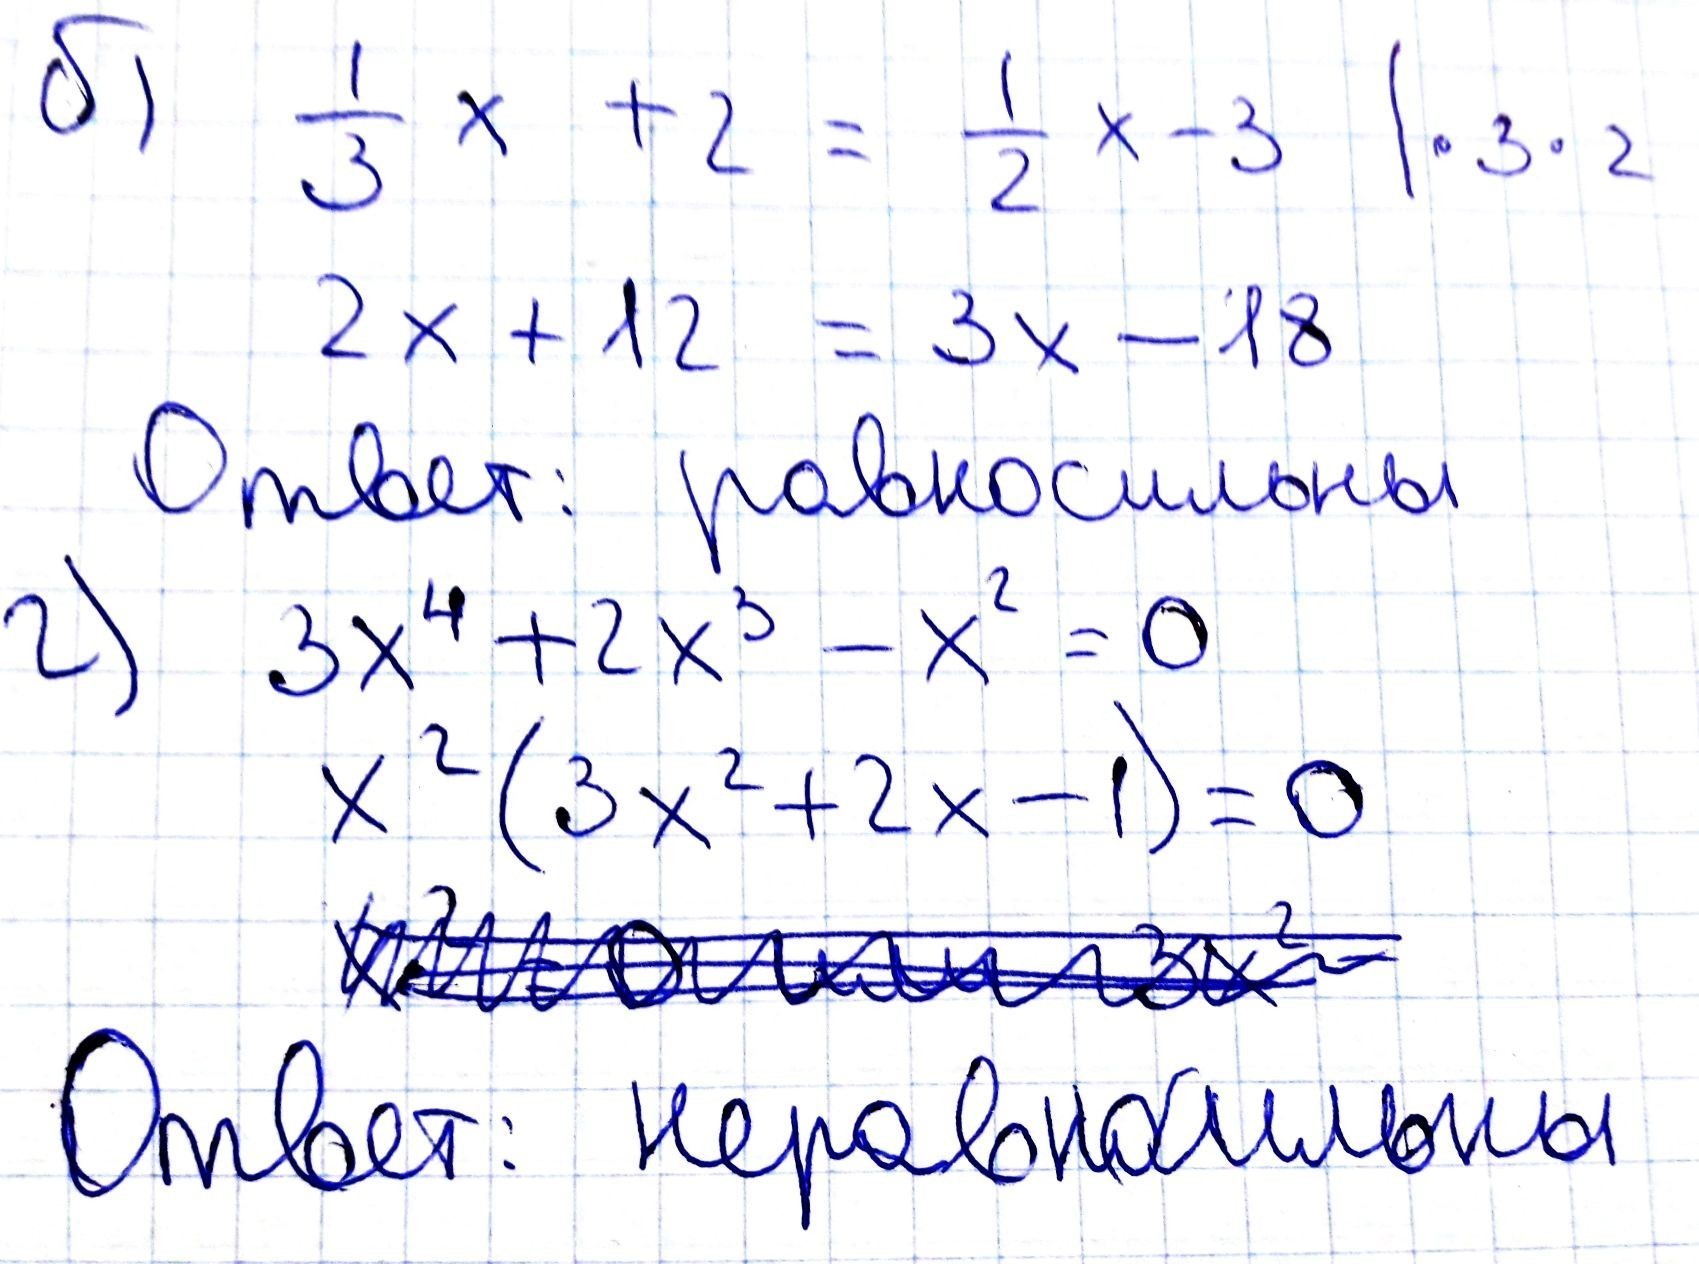 б) 1/3 x + 2 = 1/2 x - 3 | · 3 · 2
2x + 12 = 3x - 18
Ответ: равносильны
г) 3x⁴ + 2x³ - x² = 0
x² (3x² + 2x - 1) = 0
Ответ: неравносильны